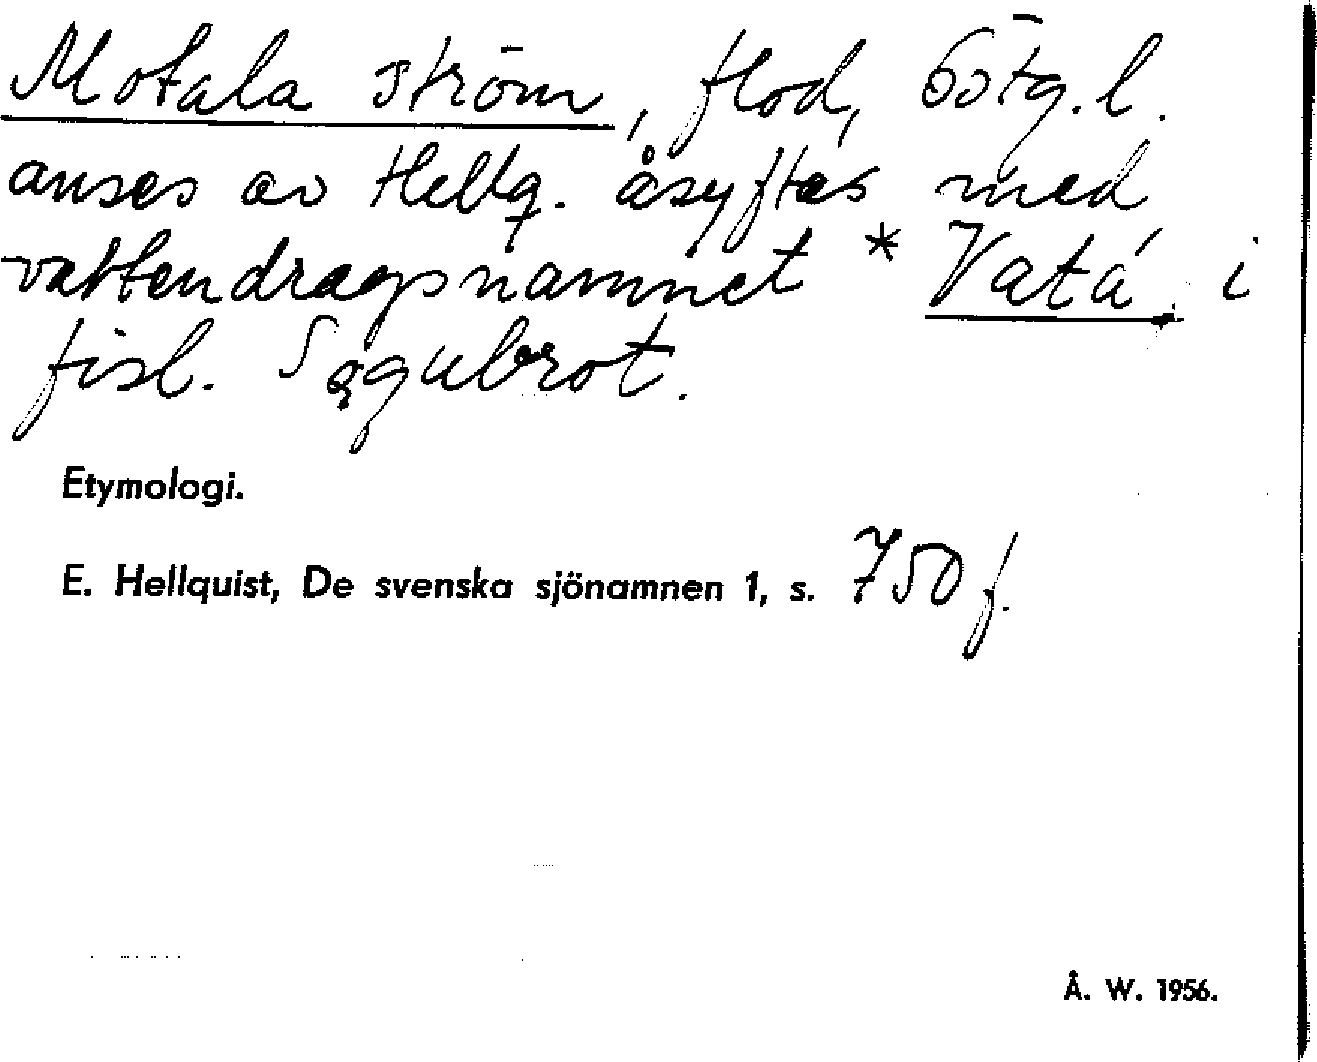 Motala ström, flod, Östg. l.
anses av Hellq. åsyftas med
vattendragsnamnet * Vatá i
fisl. Sǫgubrot.
Etymologi.
E. Hellquist, De svenska sjönamnen 1, s. 750 f.
Å. W. 1956.